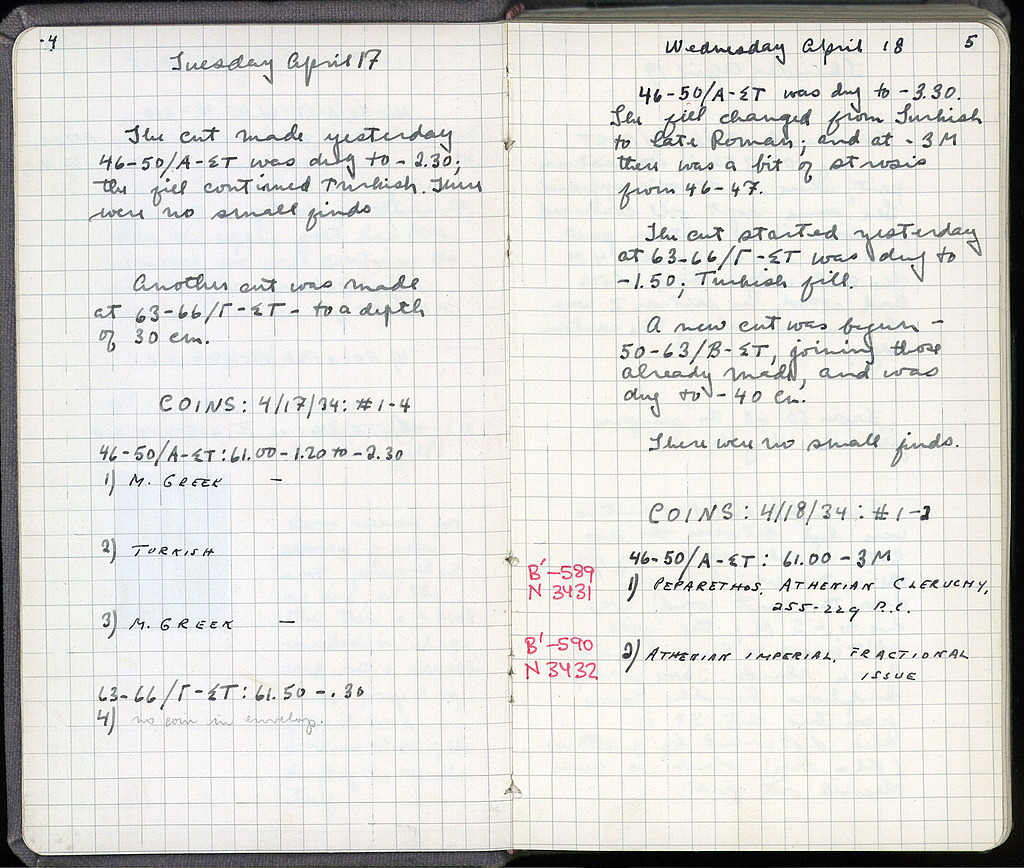 4
Tuesday April 17
The cut made yesterday
46-50/A-ΣΤ was dug to -2.30;
the fill continued Turkish. There
were no small finds
Another cut was made
at 63-66/Γ-ΣΤ - to a depth
of 30 cm.
COINS: 4/17/34: #1-4
46-50/A-ΣΤ: 61.00-1.20 to -2.30
1) M. GREEK —
2) TURKISH
3) M. GREEK —
63-66/Γ-ΣΤ: 61.50 -.30
4) no coin in envelop.
Wednesday April 18
5
46-50/A-ΣΤ was dug to -3.30.
The fill changed from Turkish
to late Roman; and at -3M
there was a bit of strosis
from 46-47.
The cut started yesterday
at 63-66/Γ-ΣΤ was dug to
-1.50; Turkish fill.
A new cut was begun -
50-63/B-ΣΤ, joining those
already made, and was
dug to -40 cm.
There were no small finds.
COINS: 4/18/34: #1-2
46-50/A-ΣΤ: 61.00-3M
B'-589
N 3431
1) PEPARETHOS, ATHENIAN CLERUCHY,
255-229 B.C.
B'-590
N 3432
2) ATHENIAN IMPERIAL, FRACTIONAL
ISSUE